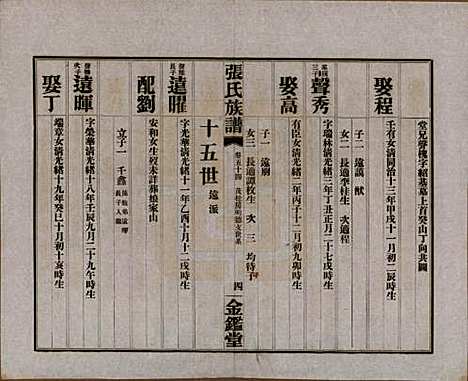 堂兄聲槐字紹基墓上首癸山丁向共圖
娶程
壬有女清同治十三年甲戌十一月初二辰時生
子二 遠謨 猷
女二 長適李柱生 次適程
聲秀
字瑞林清光緒三年丁丑正月二十七戌時生
娶高
有臣女清光緒二年丙子十二月初九卯時生
子一 遠廟
女三 長適譚枚生 次 三 均待字
張氏族譜
卷五十四 茂松房明德支世系
四
金鑑堂
十五世 遠派
遠曜
字光華清光緒十一年乙酉十月十二戌時生
配劉
安和女生歿未詳葬娘家山
立子一 千鑫
長子入繼
遠暉
字榮華清光緒十八年壬辰九月二十九午時生
娶丁
端章女清光緒十九年癸巳十月初十亥時生